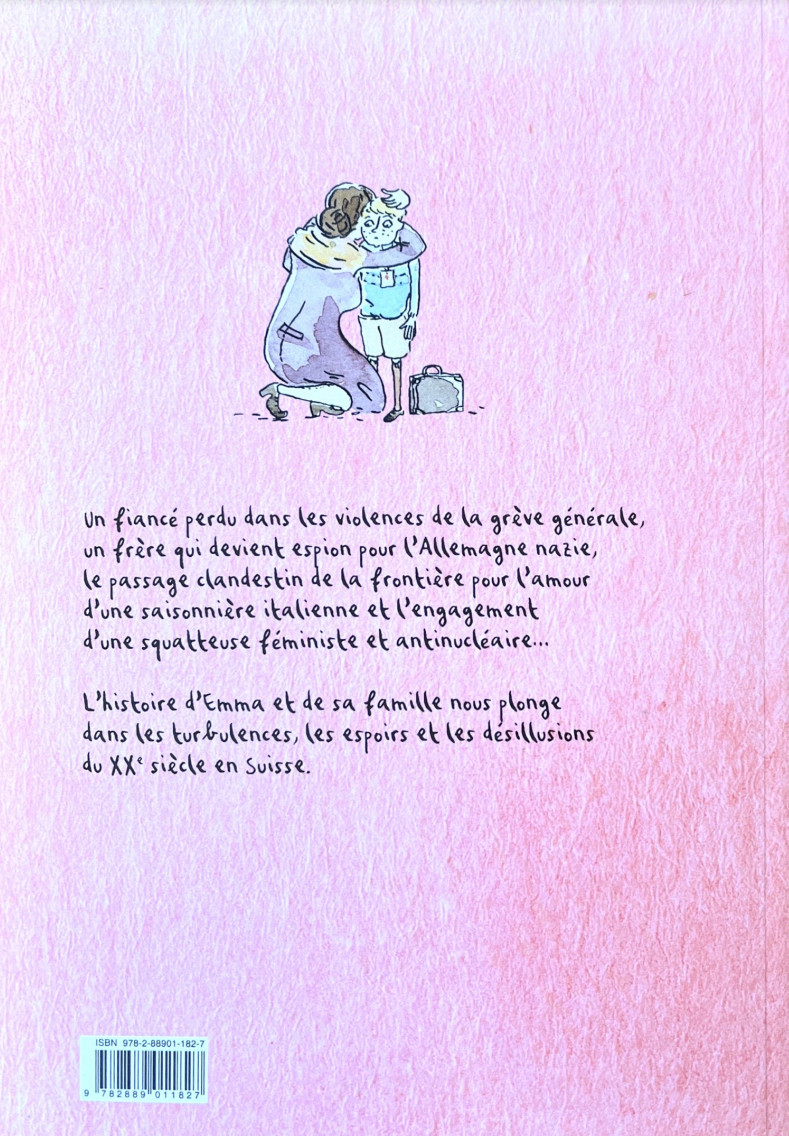 Un fiancé perdu dans les violences de la grève générale,
un frère qui devient espion pour l'Allemagne nazie,
le passage clandestin de la frontière pour l'amour
d'une saisonnière italienne et l'engagement
d'une squatteuse féministe et antinucléaire...
L'histoire d'Emma et de sa famille nous plonge
dans les turbulences, les espoirs et les désillusions
du XXe siècle en Suisse.
ISBN 978-2-88901-182-7
9 782889 011827